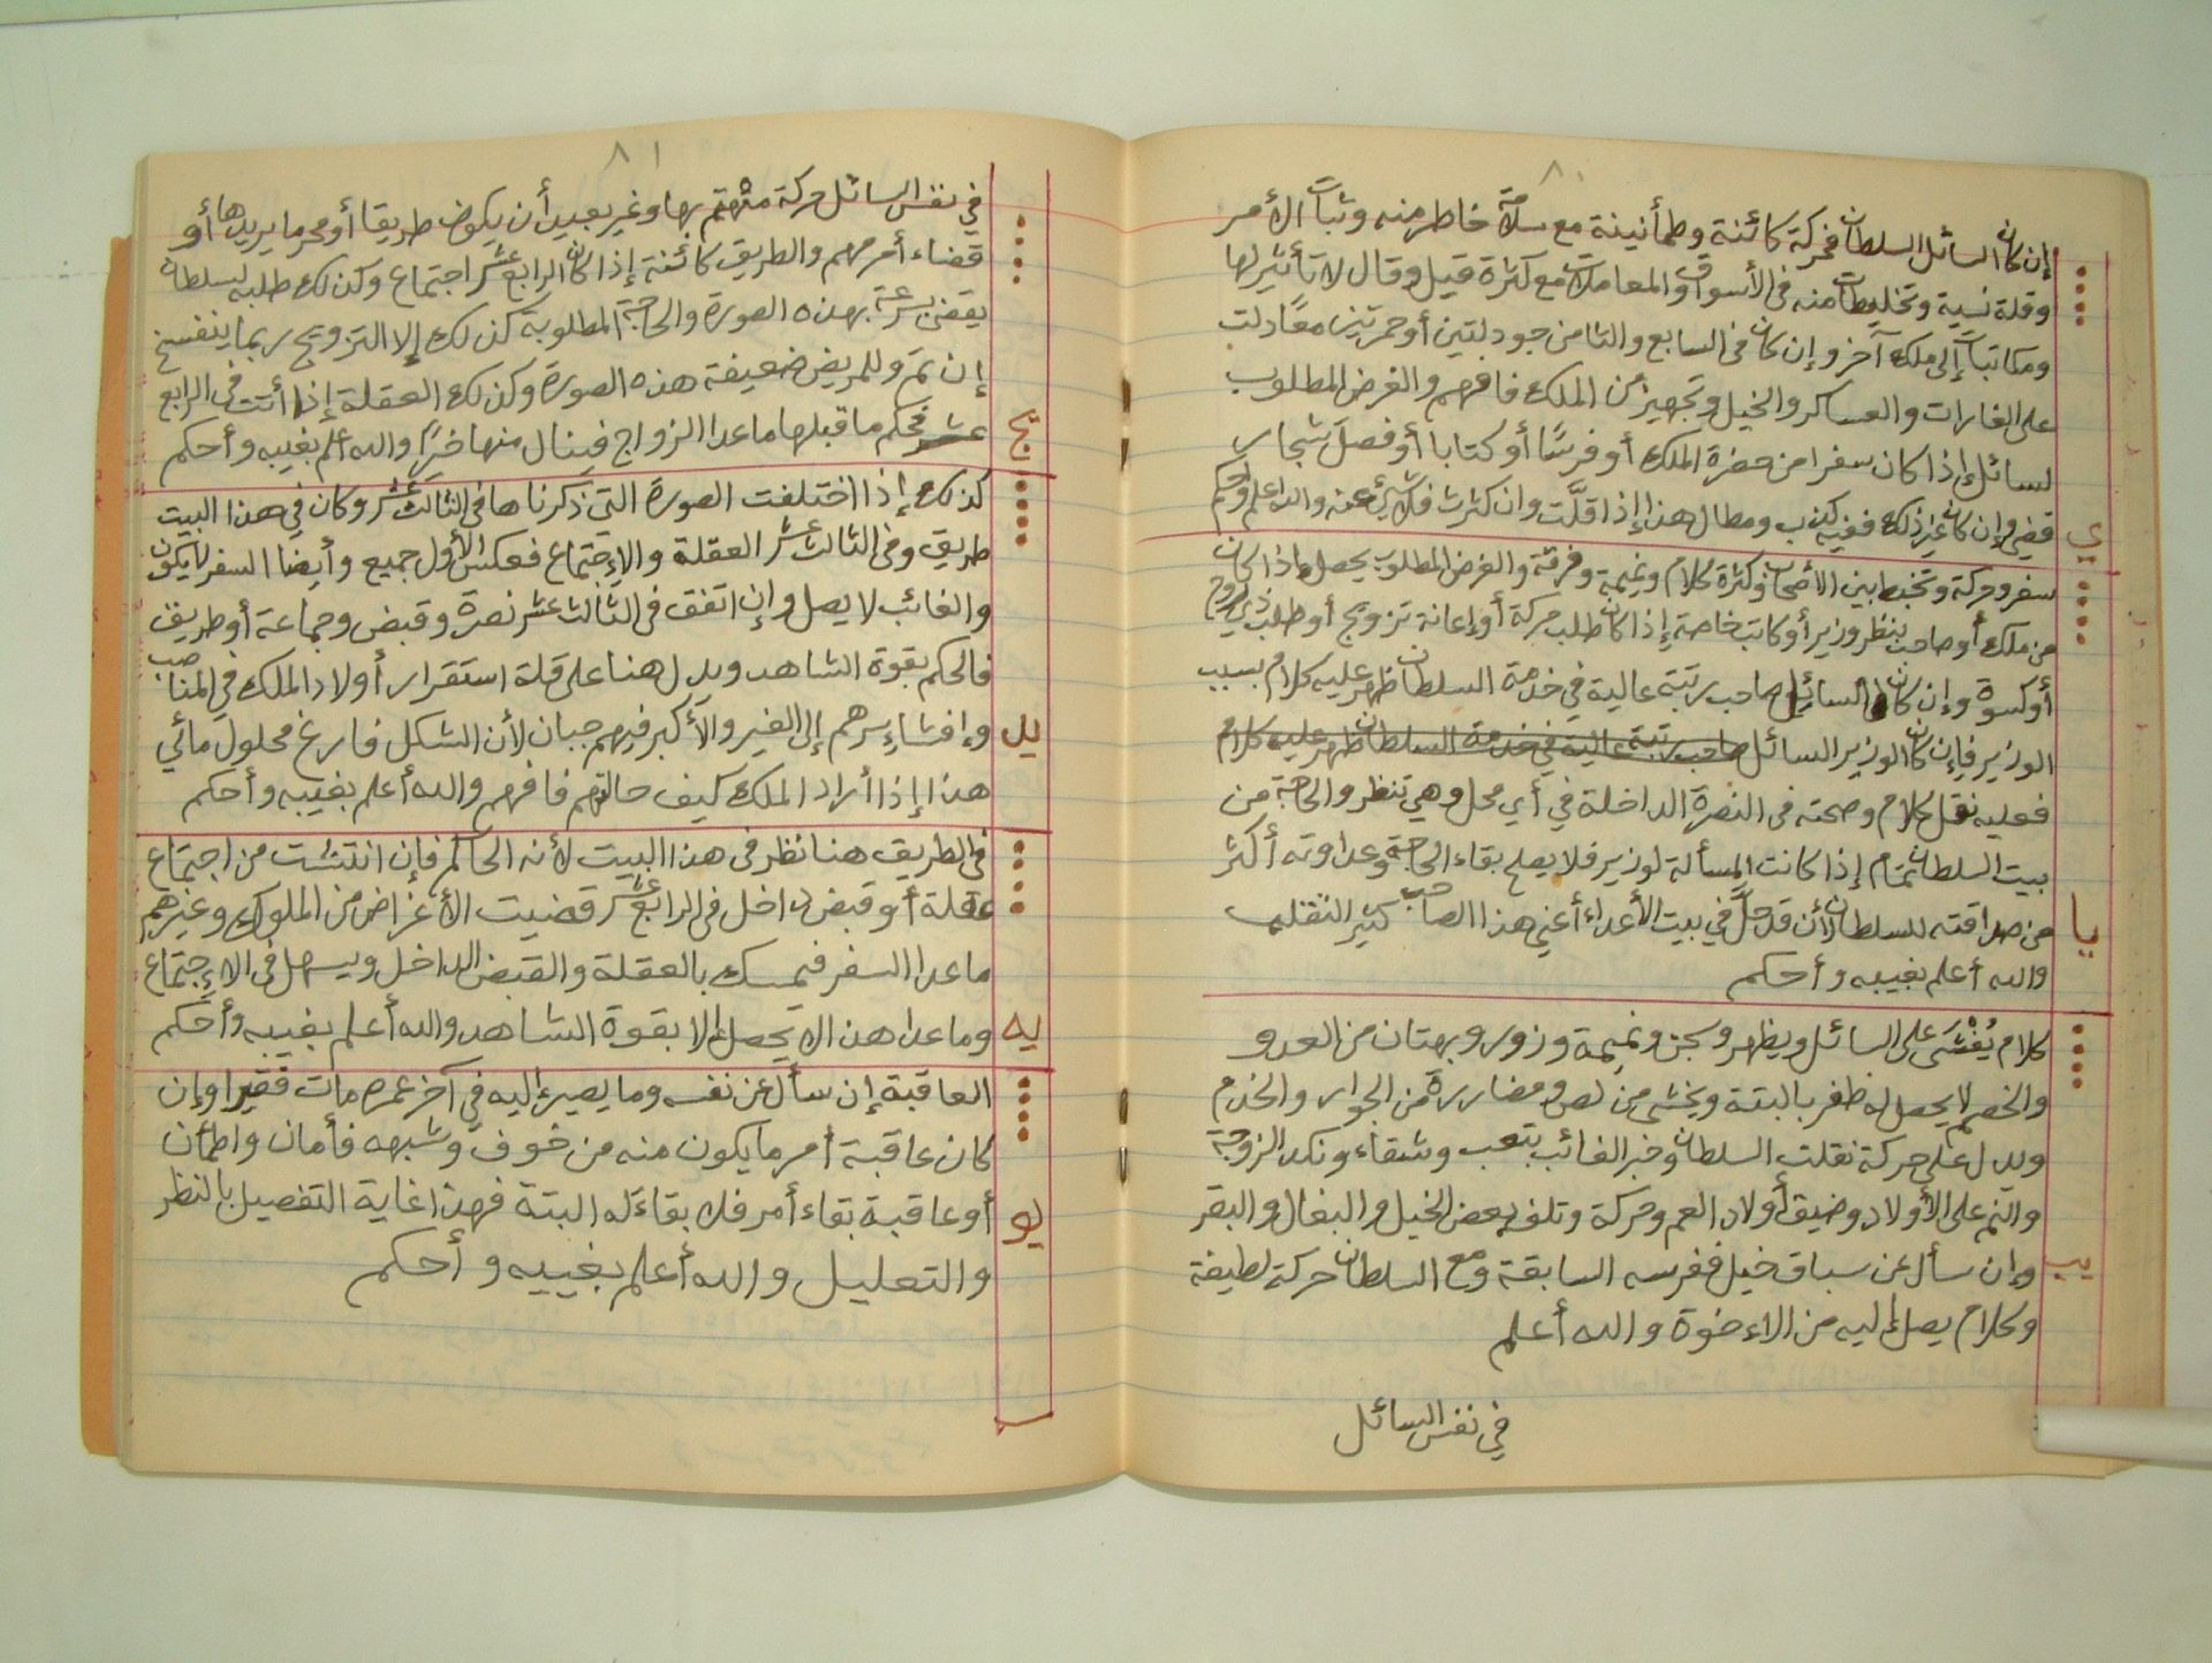 ٨٠
إن كان السائل السلطان فحركة كائنة وطمأنينة مع سلامة خاطر منه وثبات الأمر
وقلة نسية وتخليطات منه في الأسواق والمعاملات مع كثرة قيل وقال لا تأثير لها
ومكاتبات إلى ملك آخر وإن كان في السابع والثامن جودلتين أو حمرتين معًا دلت
على الغارات والعساكر والخيل وتجهيز من الملك فافهم والغرض المطلوب
لسائل إذا كان سفرا من حضرة الملك أو فرسًا أو كتابا أو فصل شجار
ي
قضي وإن كان غير ذلك ففيه كذب ومطال هذا إذا قلَّت وان كثرت فلا شيئ عنه والله اعلم وأحكم
سفر وحركة وتخبط بين الأصحاب وكثرة كلام ونميمة وفرقة والغرض المطلوب يحصل إذا كان
من ملك أو صاحب بنظر وزير أو كاتب خاصة إذا كان طلب حركة أو إعانة تزويج أو طلب
أو كسوة وإن كان السائل صاحب رتبة عالية في خدمة السلطان ظهر عليه كلام بسبب
الوزير فإن كان الوزير السائل صاحب رتبة عالية في خدمة السلطان ظهر عليه كلام
فعليه نقل كلام وصحته في النصرة الداخلة في أي محل وهي تنظر والحاجة من
بيت السلطان تمام إذا كانت المسألة لوزير فلا يصلح بقاء الحاجة وعداوته أكثر
يا
من صداقته للسلطان لأن قد حلَّ في بيت الأعداء أعني هذا الصاحب كثير التقلب
والله أعلم بغيبه وأحكم
كلام يُفْشَى على السائل ويظهر وسجن ونميمة وزور وبهتان من العدو
والخصم لا يحصل له ظفر بالبتة ويخشى من لص ومضاررة من الجوار والخدم
ويدل على حركة نقلت السلطان وخبر الغائب بتعب وشقاء ونكد الزوجة
والنم على الأولاد وضيق أولاد العم وحركة وتلف بعض الخيل والبغال والبقر
يب
وإن سأل عن سباق خيل ففرسه السابقة ومع السلطان حركة لطيفة
وكلام يصل إليه من الاءخوة والله أعلم
في نفس السائل
٨١
في نفس السائل حركة متهم بها وغير بعيد أن يكون طريقا أو محرما يريدها أو
قضاء أمر مهم والطريق كائنة إذا كان الرابع عشر اجتماع وكذلك طلبه لسلطان
يقضى بسرعة بهذه الصورة والحاجة المطلوبة كذلك إلا التزويج ربما ينفسخ
إن تم وللمريض ضعيفة هذه الصورة وكذلك العقلة إذا أتت في الرابع
يج
عشر فحكم ما قبلها ماعدا الزواج فينال منها خيرًا والله أعلم بغيبه وأحكم
كذلك إذا اختلفت الصورة التي ذكرناها في الثالث عشر وكان في هذا البيت
طريق وفي الثالث عشر العقلة والإجتماع فعكس الأول جميع وأيضا السفر لا يكون
والغائب لا يصل وإن اتفق في الثالث عشر نصرة وقبض وجماعة أو طريق
فالحكم بقوة الشاهد ويدل هنا على قلة استقرار أولاد الملك في المناصب
يد
وإفشاء سرهم إلى الغير والأكبر فيهم جبان لأن الشكل فارغ محلول مائي
هذا إذا أراد الملك كيف حالتهم فافهم والله أعلم بغيبه وأحكم
في الطريق هنا نظر في هذا البيت لأنه الحاكم فإن انتشت من اجتماع
عقلة أو قبض داخل في الرابع عشر قضيت الأغراض من الملوك وغيرهم
ماعدا السفر فيمسك بالعقلة والقبض الداخل ويسهل في الاءجتماع
يه
وماعدا هذا لا يحصل إلا بقوة الشاهد والله أعلم بغيبه وأحكم
العاقبة إن سأل عن نفسه وما يصير إليه في آخر عمره مات فقيرا وإن
كان عاقبة أمر ما يكون منه من خوف وشبهه فأمان واطمأن
يو
أو عاقبة بقاء أمر فلا بقاء له البتة فهذا غاية التفصيل بالنظر
والتعليل والله أعلم بغيبه وأحكم